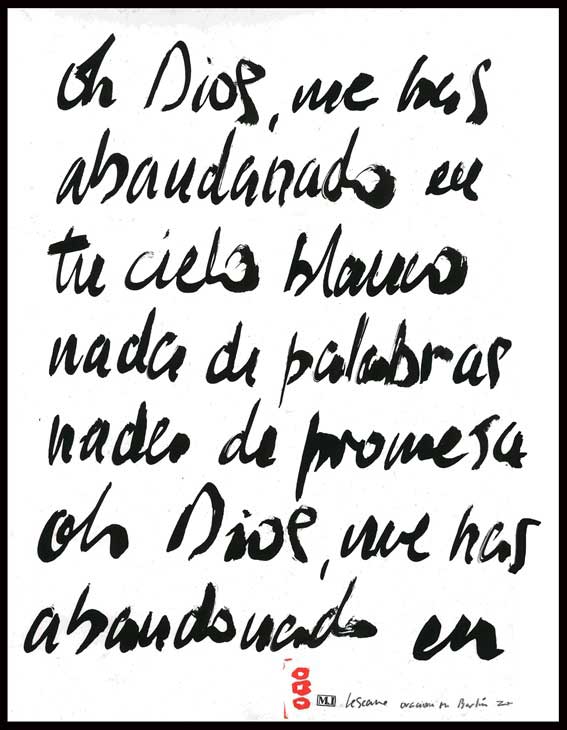 oh Dios, me has
abandonado en
tu cielo blanco
nada de palabras
nada de promesa
oh Dios, me has
abandonado en
MJ Leseane oracion en Berlin